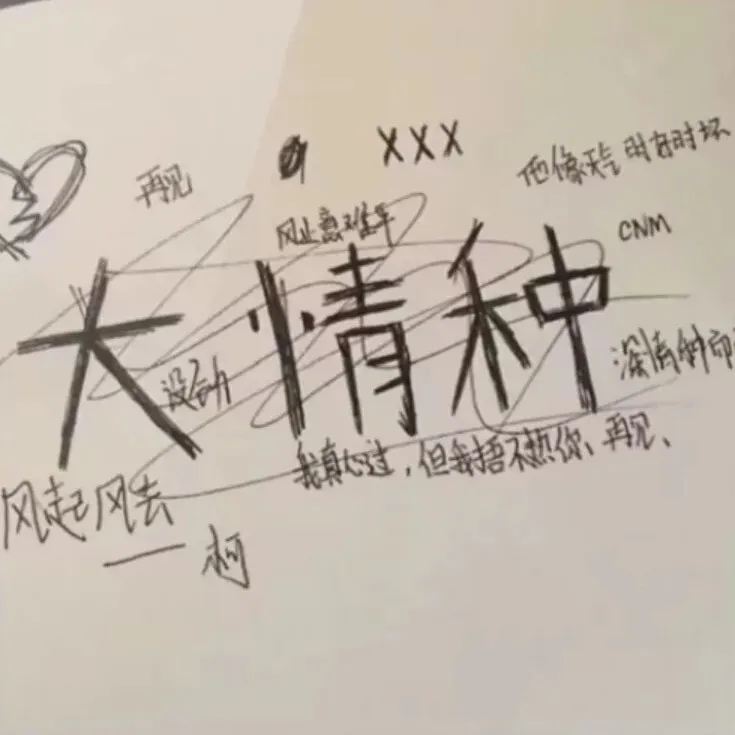 再见
XXX
他像天气时好时坏
风止意难平
CNM
大情种
没劲
深情
我真心过，但我捂不热你、再见、
风起风去
——柯